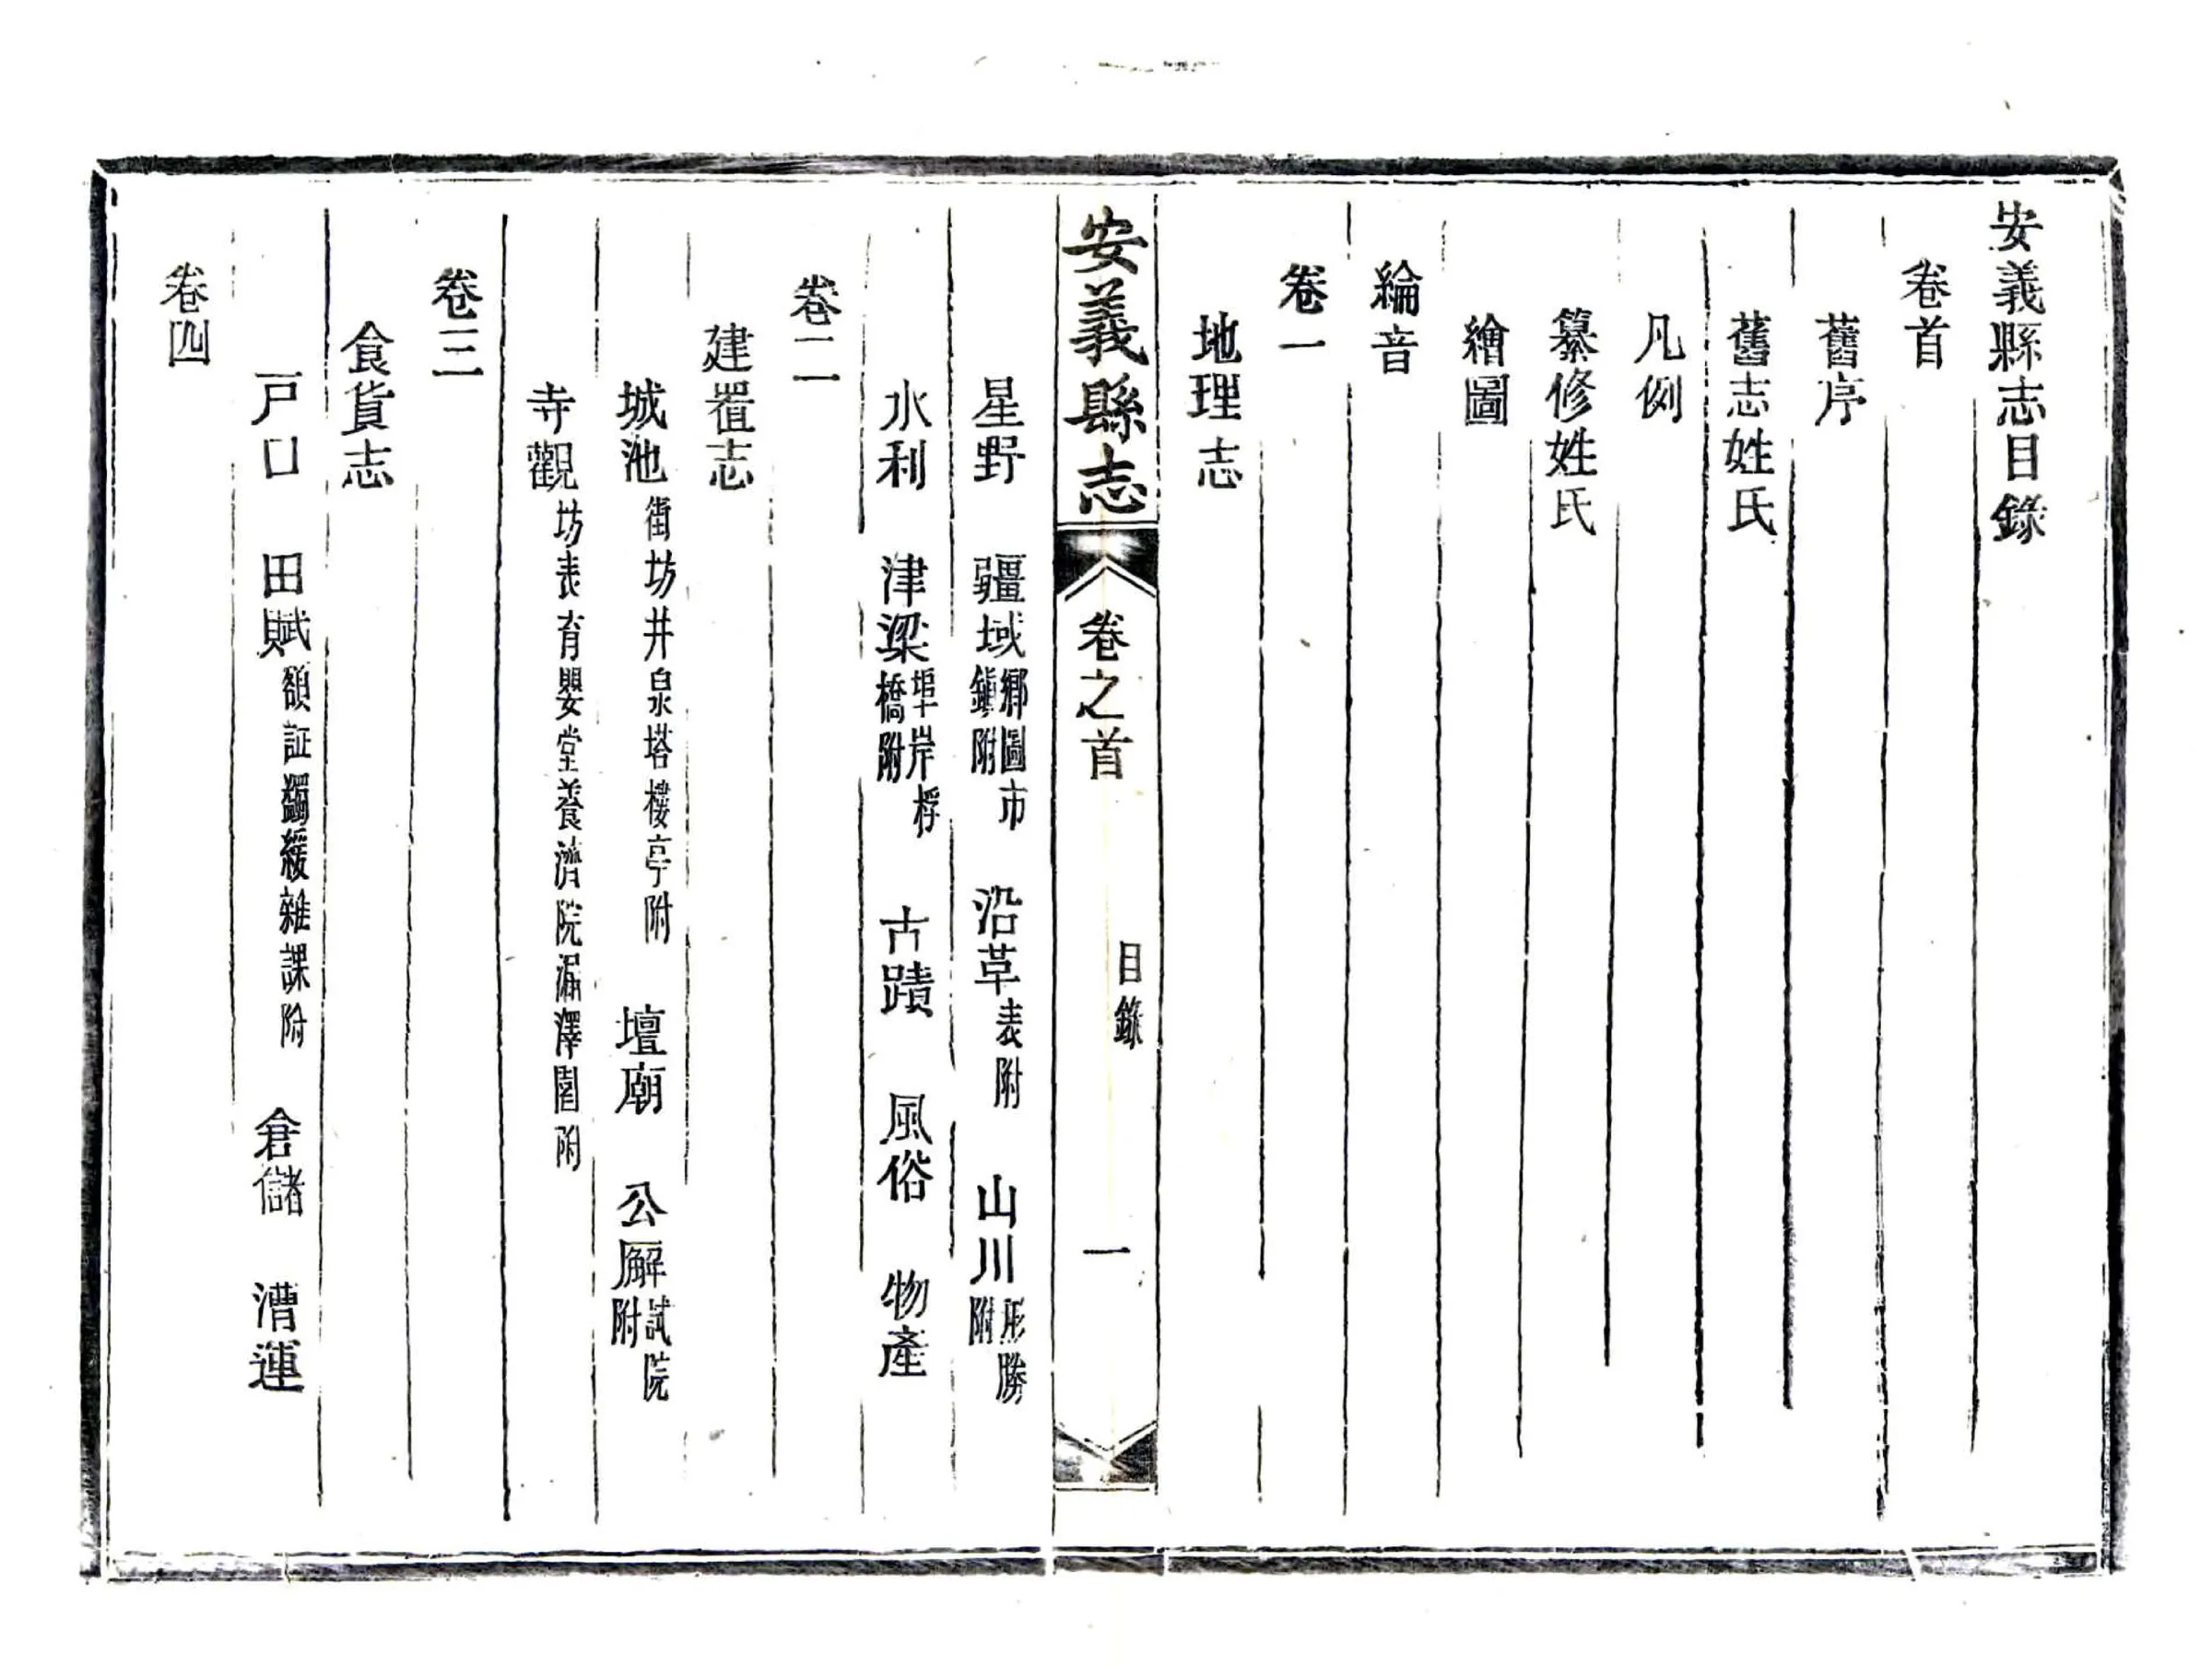 安義縣志目錄
卷首
舊序
舊志姓氏
凡例
纂修姓氏
繪圖
綸音
卷一
地理志
安義縣志 卷之首 目錄 一
星野 疆域鄉圖市鎮附 沿革表附 山川形勝附
水利 津梁埠岸桴橋附 古蹟 風俗 物產
卷二
建置志
城池街坊井泉塔樓亭附 壇廟 公廨試院附
寺觀坊表育嬰堂養濟院漏澤園附
卷三
食貨志
戶口 田賦額証蠲緩雜課附 倉儲 漕運
卷四